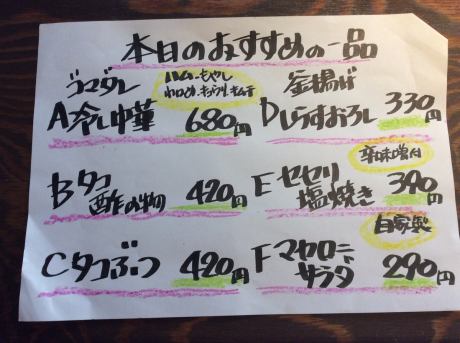 本日のおすすめの一品
ゴマダレ
ハム、もやし
わかめ、きゅうり、キムチ
A冷し中華 680円
釜揚げ
Dしらすおろし 330円
Bタコ
酢の物 420円
辛味噌付
Eセセリ
塩焼き 390円
Cタコぶつ 420円
自家製
Fマカロニ
サラダ 290円